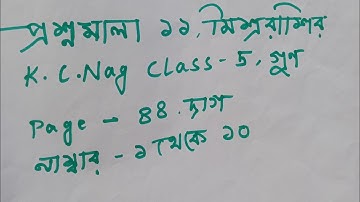 প্রশ্নমালা ১১, মিশ্ররাশির
K. C. Nag Class - 5, গুণ
Page - 88. দাগ
নাম্বার - ১ থেকে ১০